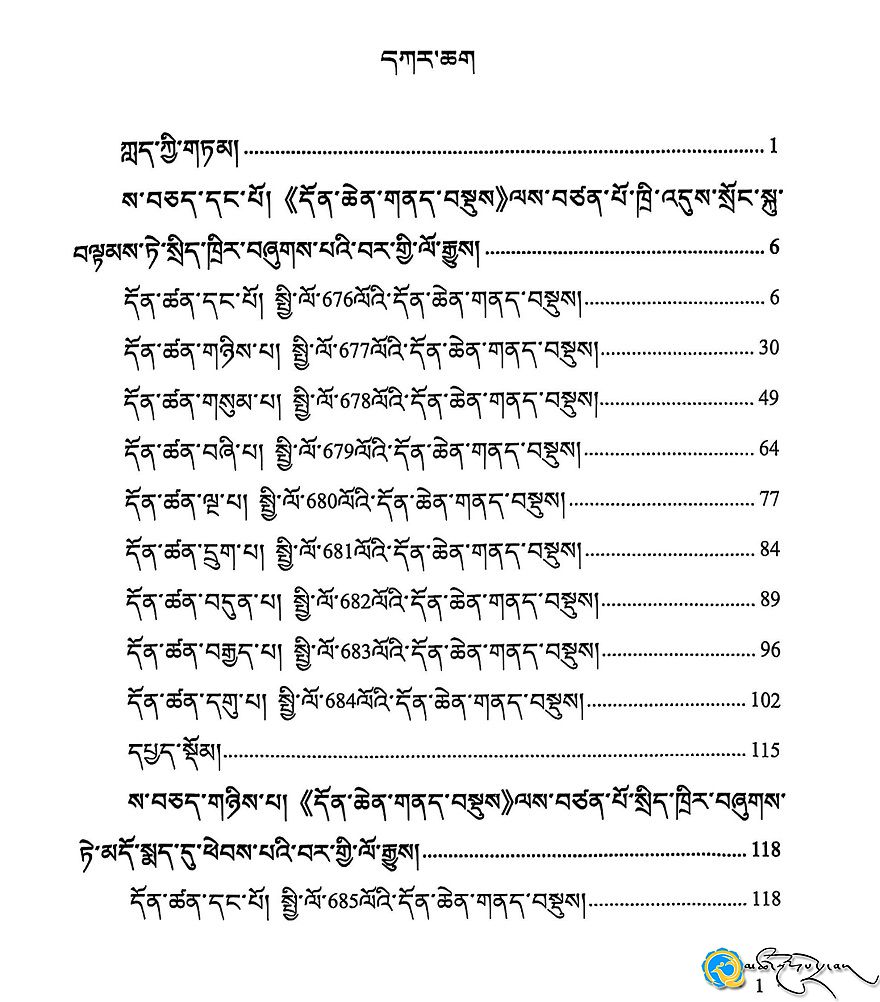 དཀར་ཆག
ཀླད་ཀྱི་གཏམ། ........ 1
ས་བཅད་དང་པོ། 《དོན་ཆེན་གནད་བསྡུས》ལས་བཙན་པོ་ཁྲི་འདུས་སྲོང་སྐུ་
བལྟམས་ཏེ་སྲིད་ཁྲིར་བཞུགས་པའི་བར་གྱི་ལོ་རྒྱུས། ........ 6
དོན་ཚན་དང་པོ། སྤྱི་ལོ་676ལོའི་དོན་ཆེན་གནད་བསྡུས། ........ 6
དོན་ཚན་གཉིས་པ། སྤྱི་ལོ་677ལོའི་དོན་ཆེན་གནད་བསྡུས། ........ 30
དོན་ཚན་གསུམ་པ། སྤྱི་ལོ་678ལོའི་དོན་ཆེན་གནད་བསྡུས། ........ 49
དོན་ཚན་བཞི་པ། སྤྱི་ལོ་679ལོའི་དོན་ཆེན་གནད་བསྡུས། ........ 64
དོན་ཚན་ལྔ་པ། སྤྱི་ལོ་680ལོའི་དོན་ཆེན་གནད་བསྡུས། ........ 77
དོན་ཚན་དྲུག་པ། སྤྱི་ལོ་681ལོའི་དོན་ཆེན་གནད་བསྡུས། ........ 84
དོན་ཚན་བདུན་པ། སྤྱི་ལོ་682ལོའི་དོན་ཆེན་གནད་བསྡུས། ........ 89
དོན་ཚན་བརྒྱད་པ། སྤྱི་ལོ་683ལོའི་དོན་ཆེན་གནད་བསྡུས། ........ 96
དོན་ཚན་དགུ་པ། སྤྱི་ལོ་684ལོའི་དོན་ཆེན་གནད་བསྡུས། ........ 102
དཔྱད་སྡོམ། ........ 115
ས་བཅད་གཉིས་པ། 《དོན་ཆེན་གནད་བསྡུས》ལས་བཙན་པོ་སྲིད་ཁྲིར་བཞུགས་
ཏེ་མདོ་སྨད་དུ་ཕེབས་པའི་བར་གྱི་ལོ་རྒྱུས། ........ 118
དོན་ཚན་དང་པོ། སྤྱི་ལོ་685ལོའི་དོན་ཆེན་གནད་བསྡུས། ........ 118
1